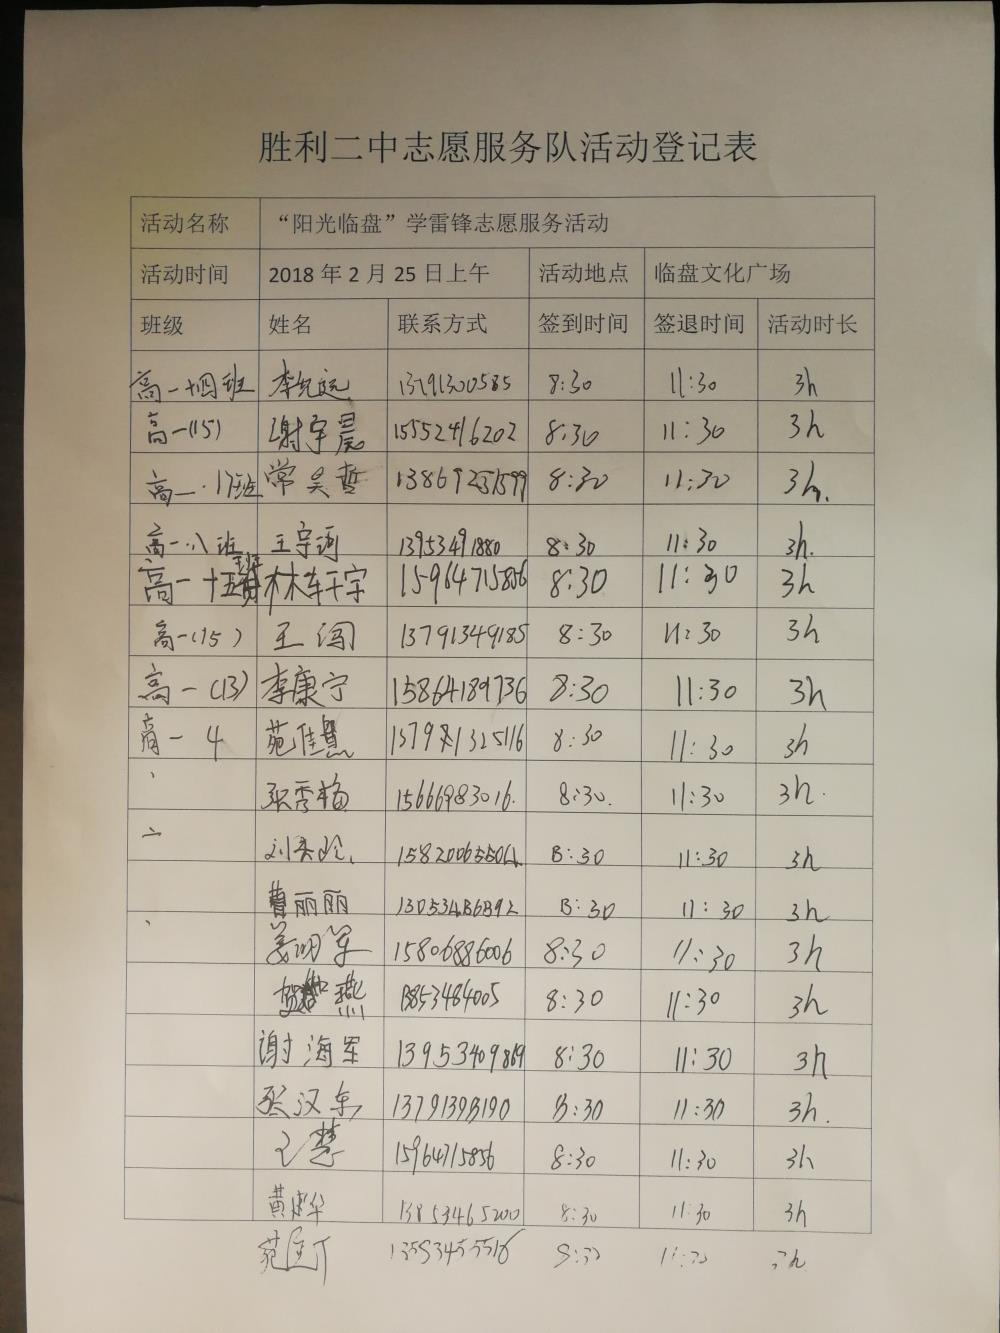 胜利二中志愿服务队活动登记表
活动名称 “阳光临盘”学雷锋志愿服务活动
活动时间 2018年2月25日上午 活动地点 临盘文化广场
班级 姓名 联系方式 签到时间 签退时间 活动时长
高一十四班 李允远 13791300585 8:30 11:30 3h
高一(15) 谢宇晨 15552416202 8:30 11:30 3h
高一.17班 常昊哲 13869251599 8:30 11:30 3h.
高一.八班 王宇河 13953491880 8:30 11:30 3h.
高一十五班 林轩宇 15964715856 8:30 11:30 3h
高一(15) 王闯 13791349185 8:30 11:30 3h
高一(13) 李康宁 15864189736 8:30 11:30 3h
高一4 苑佳慧 8:30 11:30 3h
张秀梅 15666983016. 8:30. 11:30 3h.
8:30 11:30 3h
曹丽丽 8:30 11:30 3h
姜明军 15806886006 8:30 11:30 3h
燕 13853484005 8:30 11:30 3h
谢海军 13953409869 8:30 11:30 3h
张汉东 13791398190 8:30 11:30 3h.
王慧 15964715856 8:30 11:30 3h
黄建华 13853465200 8:30 11:30 3h
苑 8:30 11:30 3h